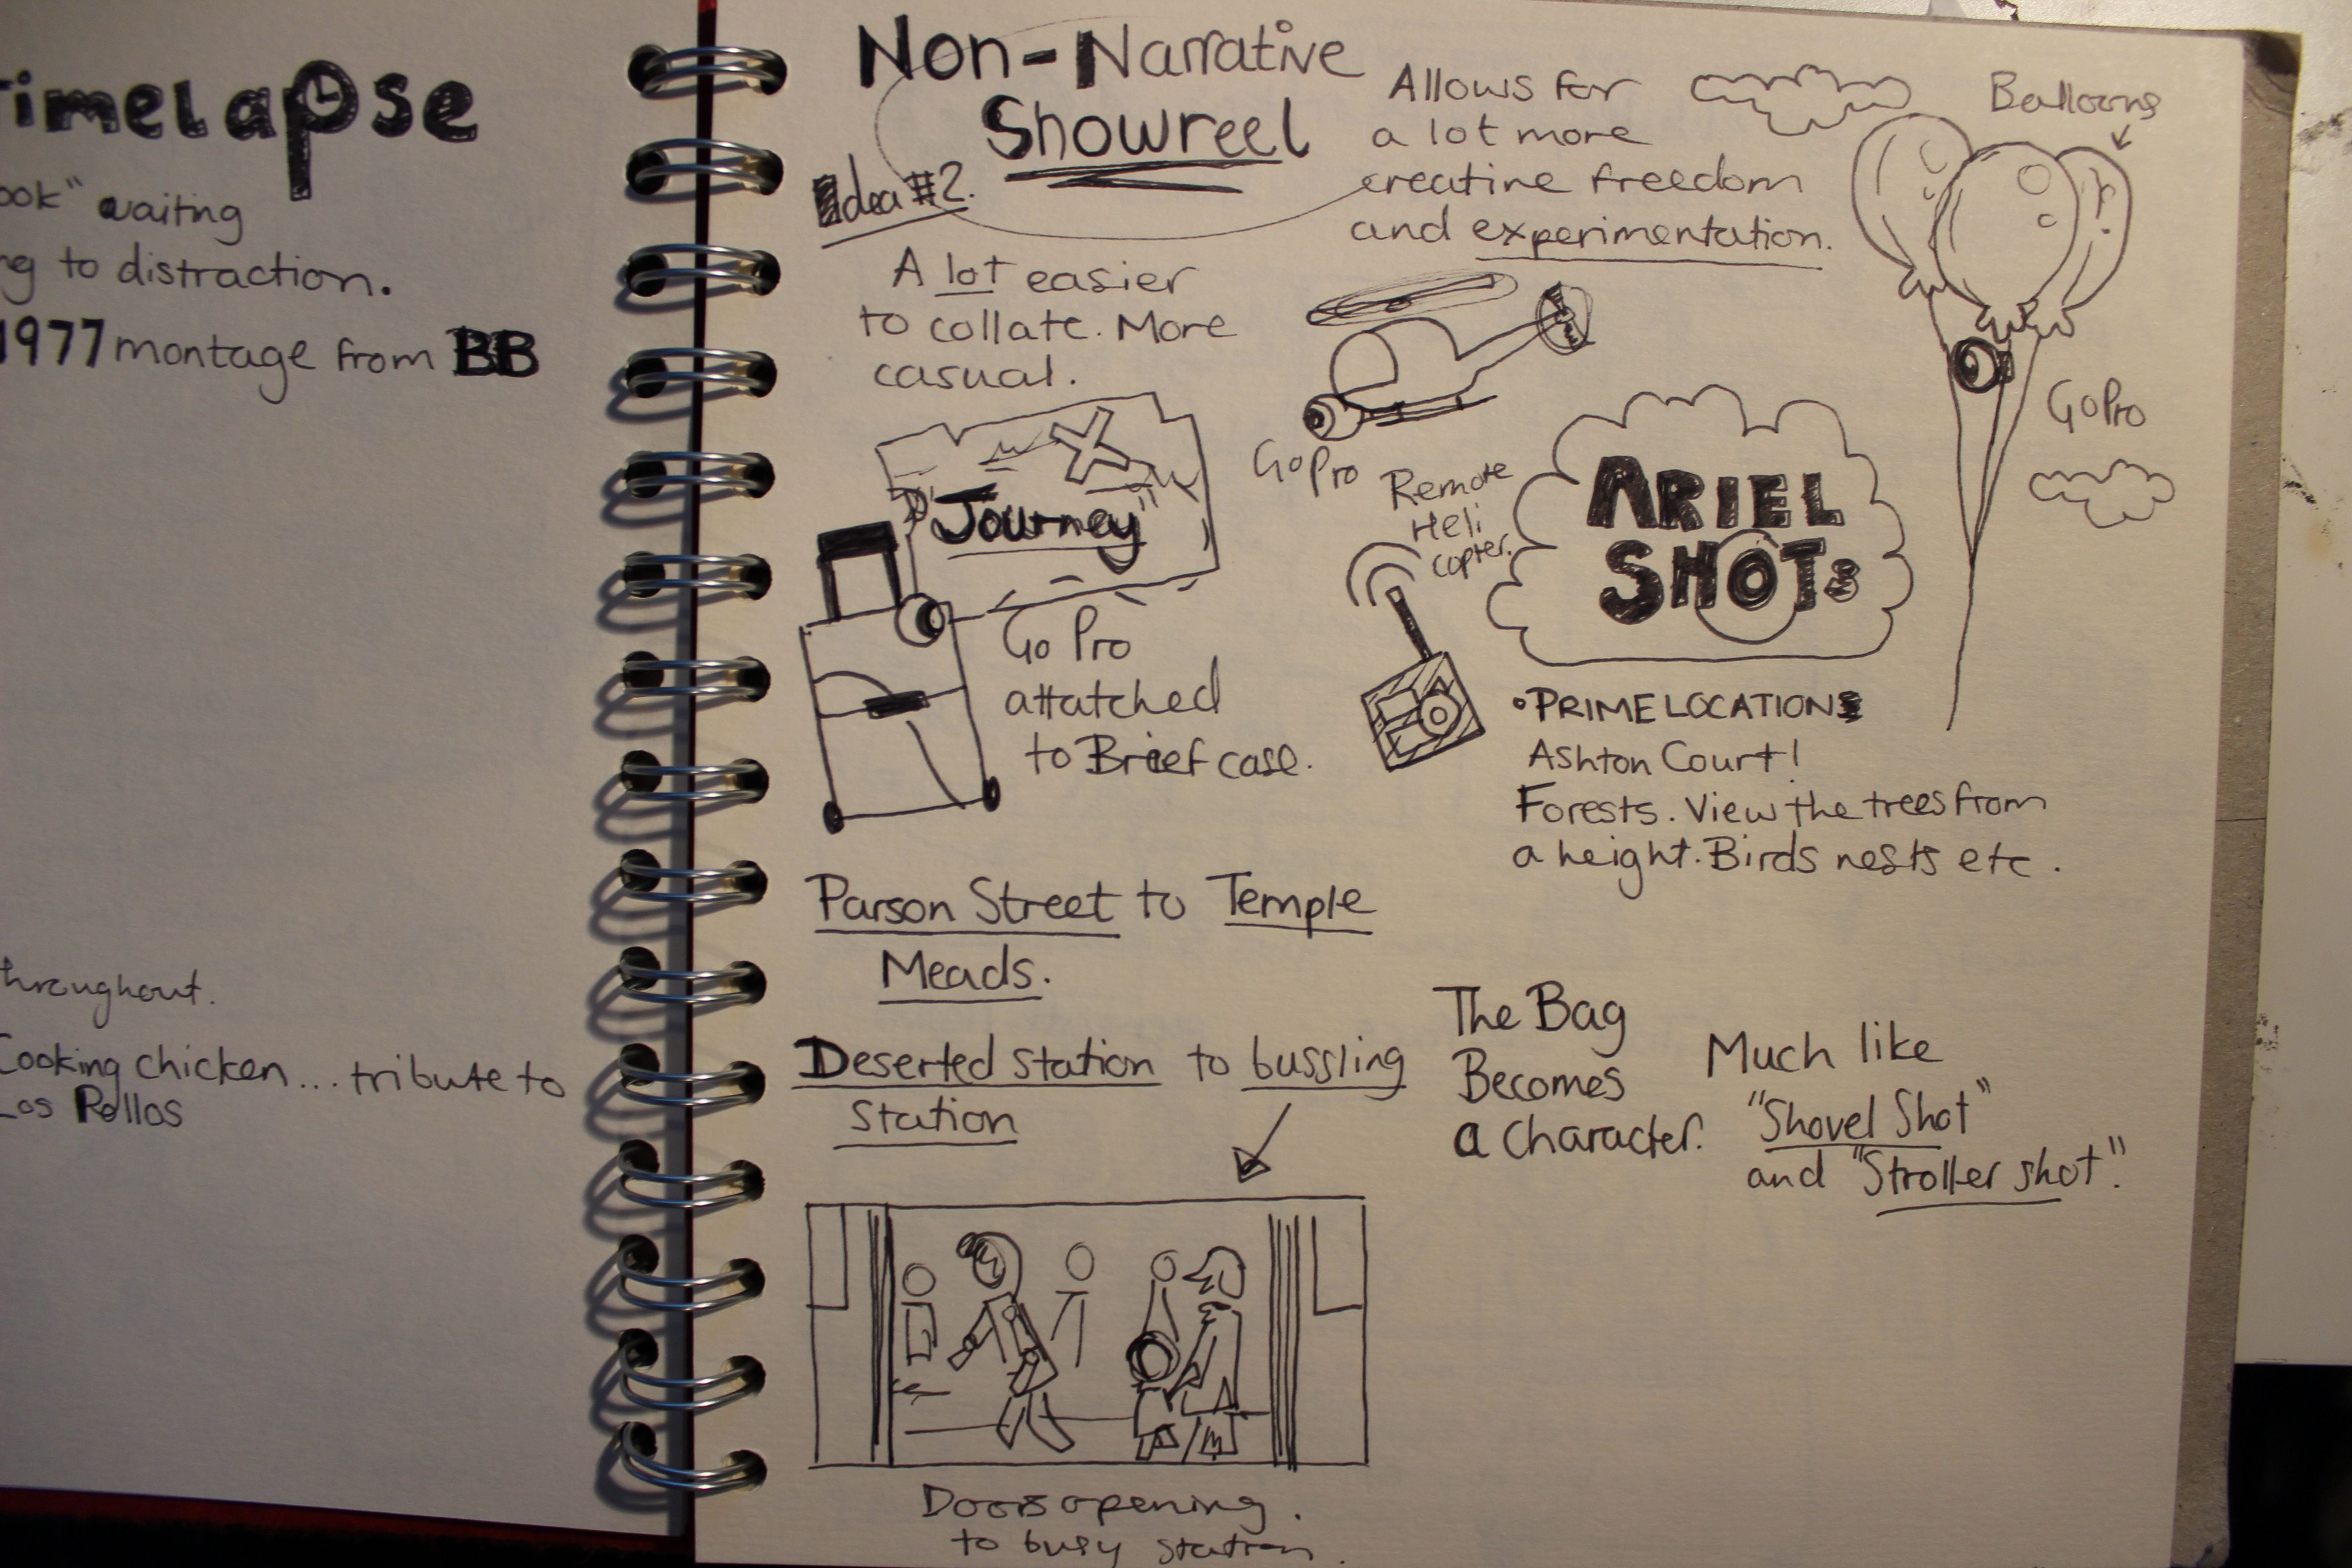 Timelapse
ook" waiting
ng to distraction.
1977 montage from BB
throughout.
Cooking chicken... tribute to
Los Pollos
Non-Narrative
Showreel
Idea #2.
A lot easier
to collate. More
casual.
Allows for
a lot more
creative freedom
and experimentation.
Balloons
GoPro
GoPro
Remote
Heli
copter.
ARIEL
SHOTS
"Journey"
Go Pro
attatched
to Brief case.
• PRIME LOCATIONS
Ashton Court!
Forests. View the trees from
a height. Birds nests etc.
Parson Street to Temple
Meads.
Deserted Station to bussling
Station
The Bag
Becomes
a Character.
Much like
"Shovel Shot"
and "Stroller shot".
Doors opening.
to busy station.